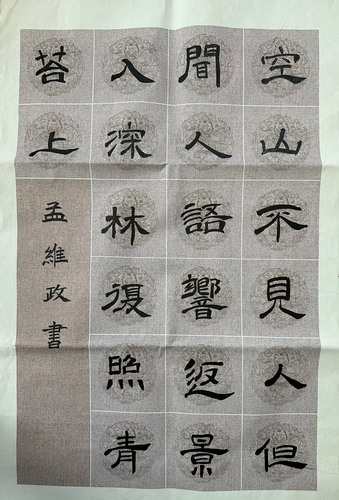 空山不見人但
聞人語響返景
入深林復照青
苔上
孟維政書